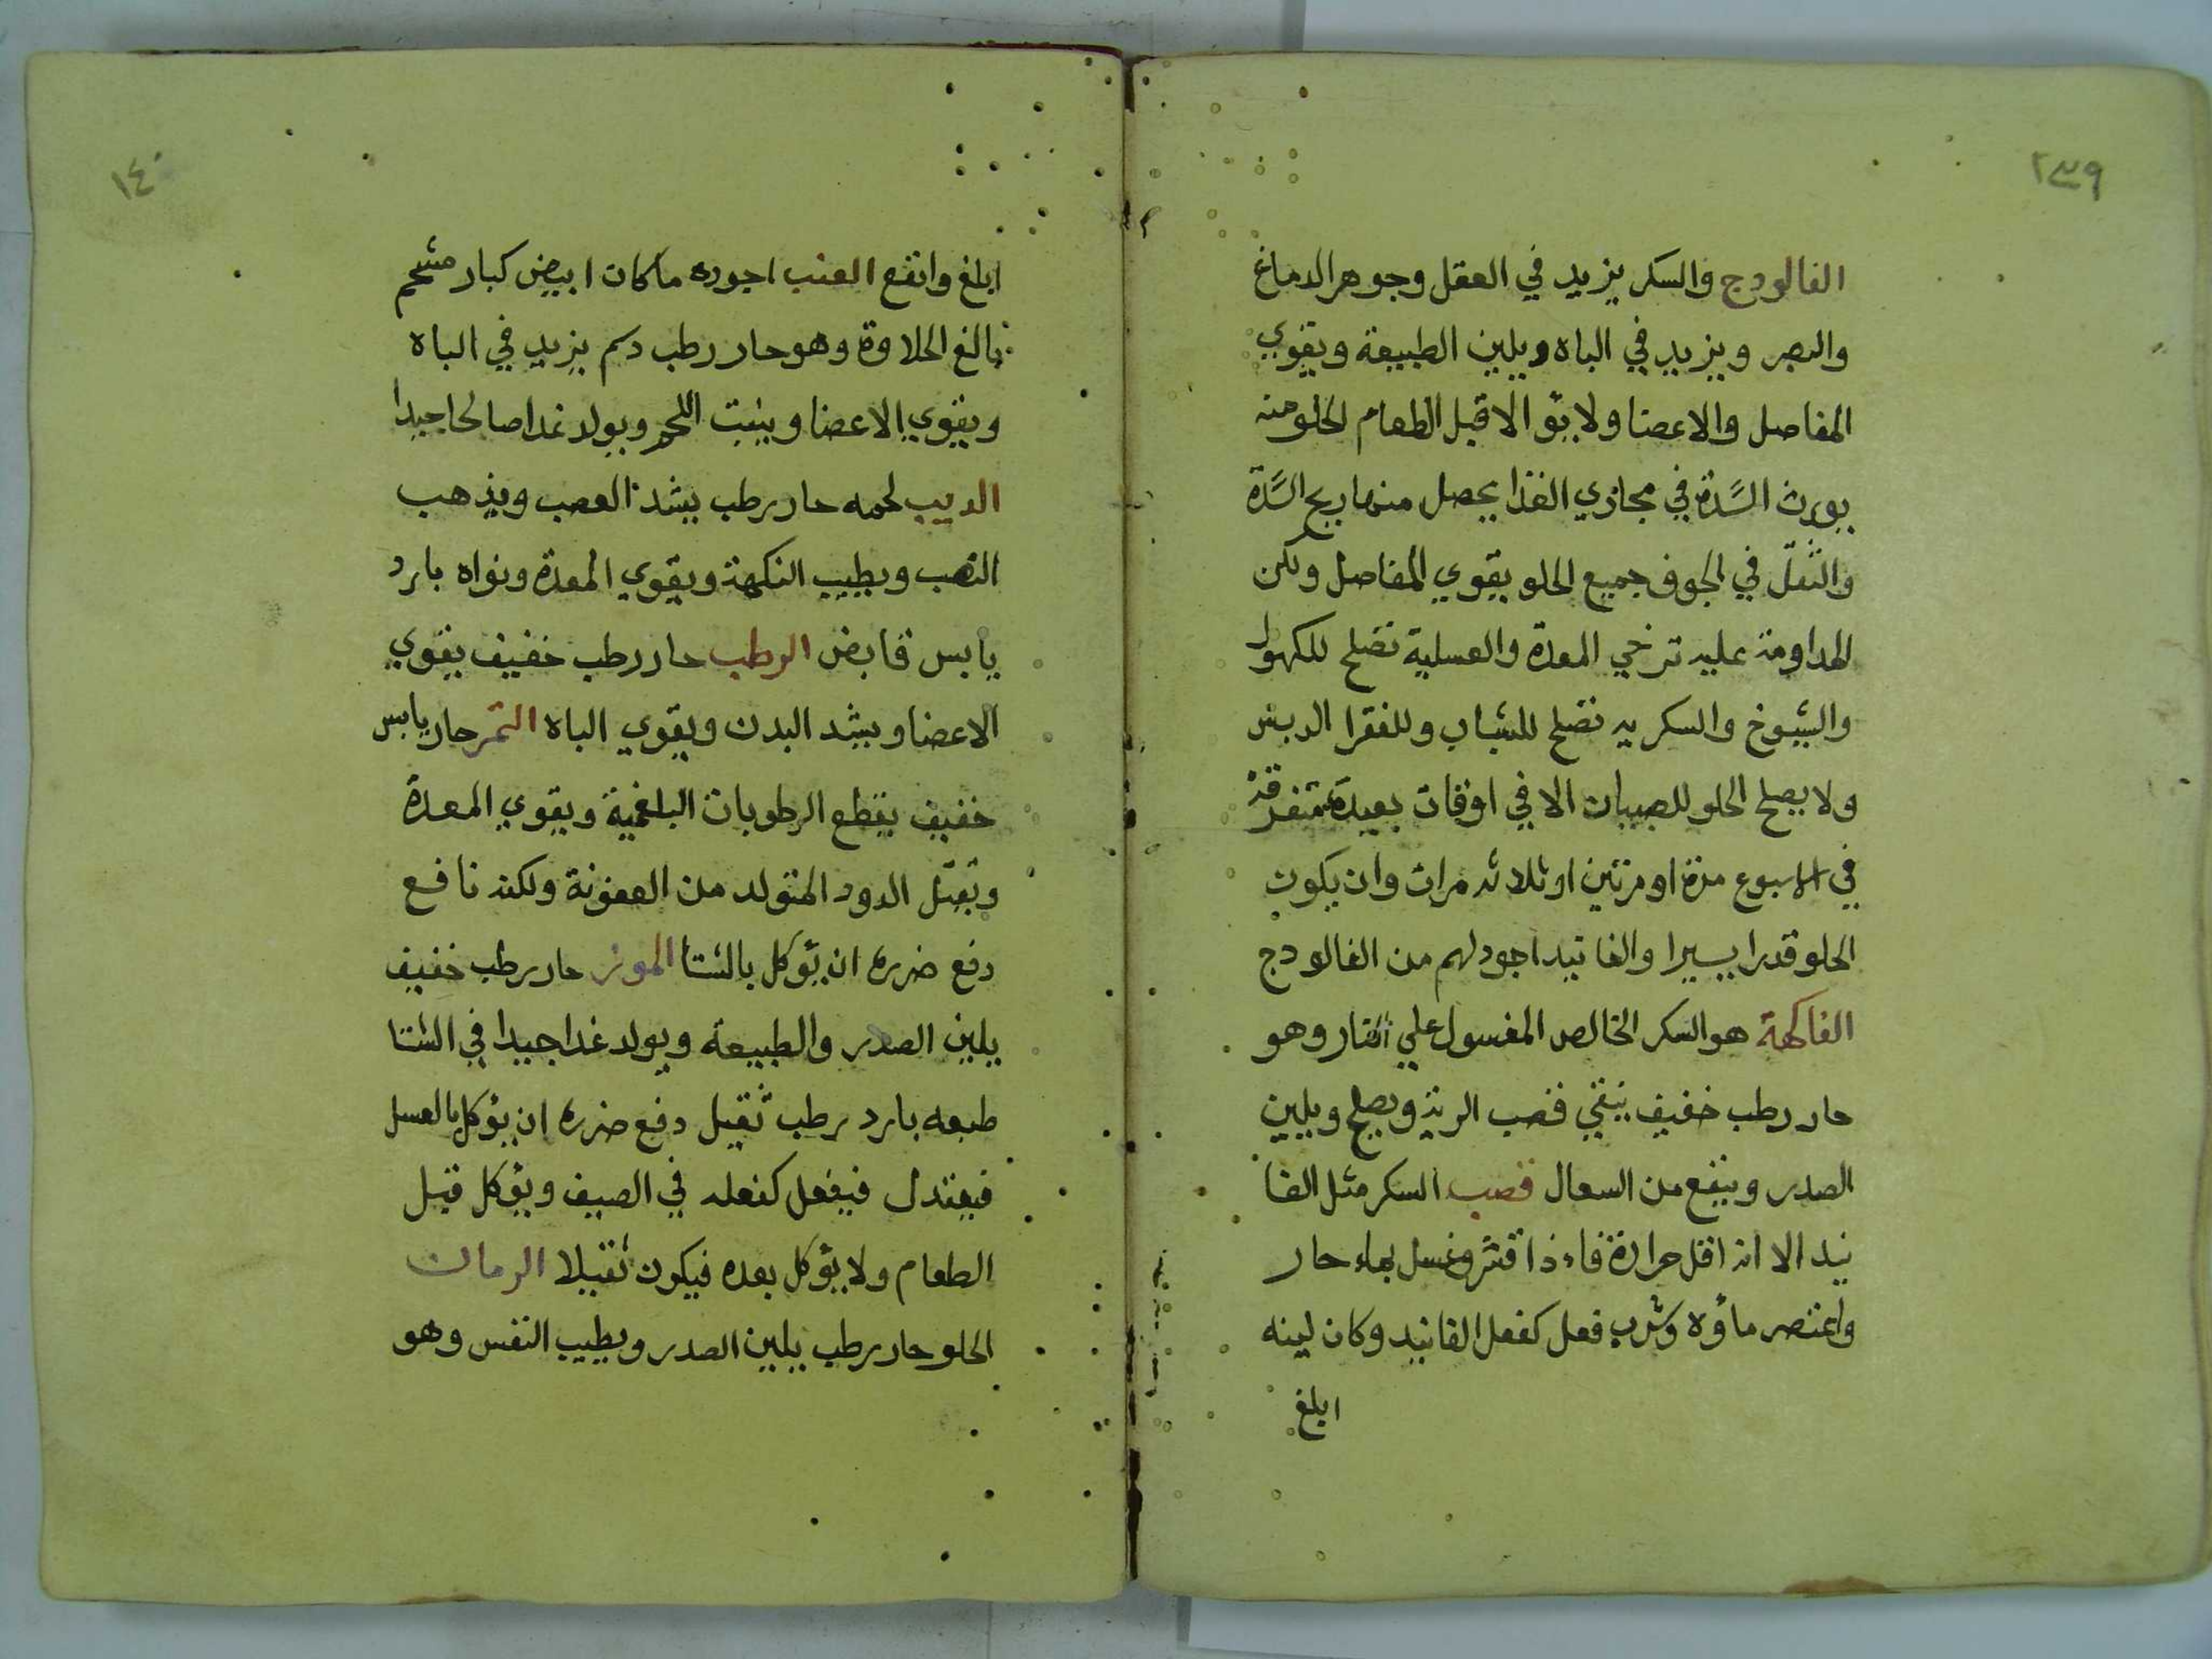 ٢٣٩
الفالودج والسكر يزيد في العقل وجوهر الدماغ
والبصر ويزيد في الباه ويلين الطبيعة ويقوي
المفاصل والاعضا ولا يؤ الا قبل الطعام لخلو منه
يورث السَّدة في مجازي الغذا يحصل منها ريح السَّدة
والثقل في الجوف جميع الحلو يقوي المفاصل ولكن
المداومة عليه ترخي المعدة والعسلية تصلح للكهول
والشيوخ والسكريه تصلح للشباب وللفقرا الدبس
ولا يصلح الحلو للصبيان الا في اوقات بعيدة متفرقة
في الاسبوع مرة او مرتين او ثلاثه مرات وان يكون
الحلو قدرا يسيرا والفانيد اجود لهم من الفالودج
الفاكهة هو السكر الخالص المغسول علي النار وهو
حار رطب خفيف ينقي قصب الرية ويصلح ويلين
الصدر وينفع من السعال قصب السكر مثل الفا
نيد الا انه اقل حرارة فاءذا قشر وغسل بماء حار
واعتصر ماؤه وشرب فعل كفعل الفانيد وكان لينه
ابلغ
١٤٠
ابلغ وانفع العنب اجوده ما كان ابيض كبار مشحم
بالغ الحلاوة وهو حار رطب دسم يزيد في الباه
ويقوي الاعضا وينبت اللحم ويولد غدا صالحا جيدا
الدبيب لحمه حار رطب يشد العصب ويذهب
النصب ويطيب النكهة ويقوي المعدة ونواه بارد
يابس قابض الرطب حار رطب خفيف يقوي
الاعضا ويشد البدن ويقوي الباه التمر حار يابس
خفيف يقطع الرطوبات البلغمية ويقوي المعدة
ويقتل الدود المتولد من العفونة ولكنه نافع
دفع ضرره ان يؤكل بالشتا الموز حار رطب خفيف
يلين الصدر والطبيعة ويولد غدا جيدا في الشتا
طبعه بارد رطب ثقيل دفع ضرره ان يؤكل بالعسل
فيعتدل فيفعل كفعله في الصيف ويؤكل قبل
الطعام ولا يؤكل بعده فيكون ثقيلا الرمان
الحلو حار رطب يلين الصدر ويطيب النفس وهو